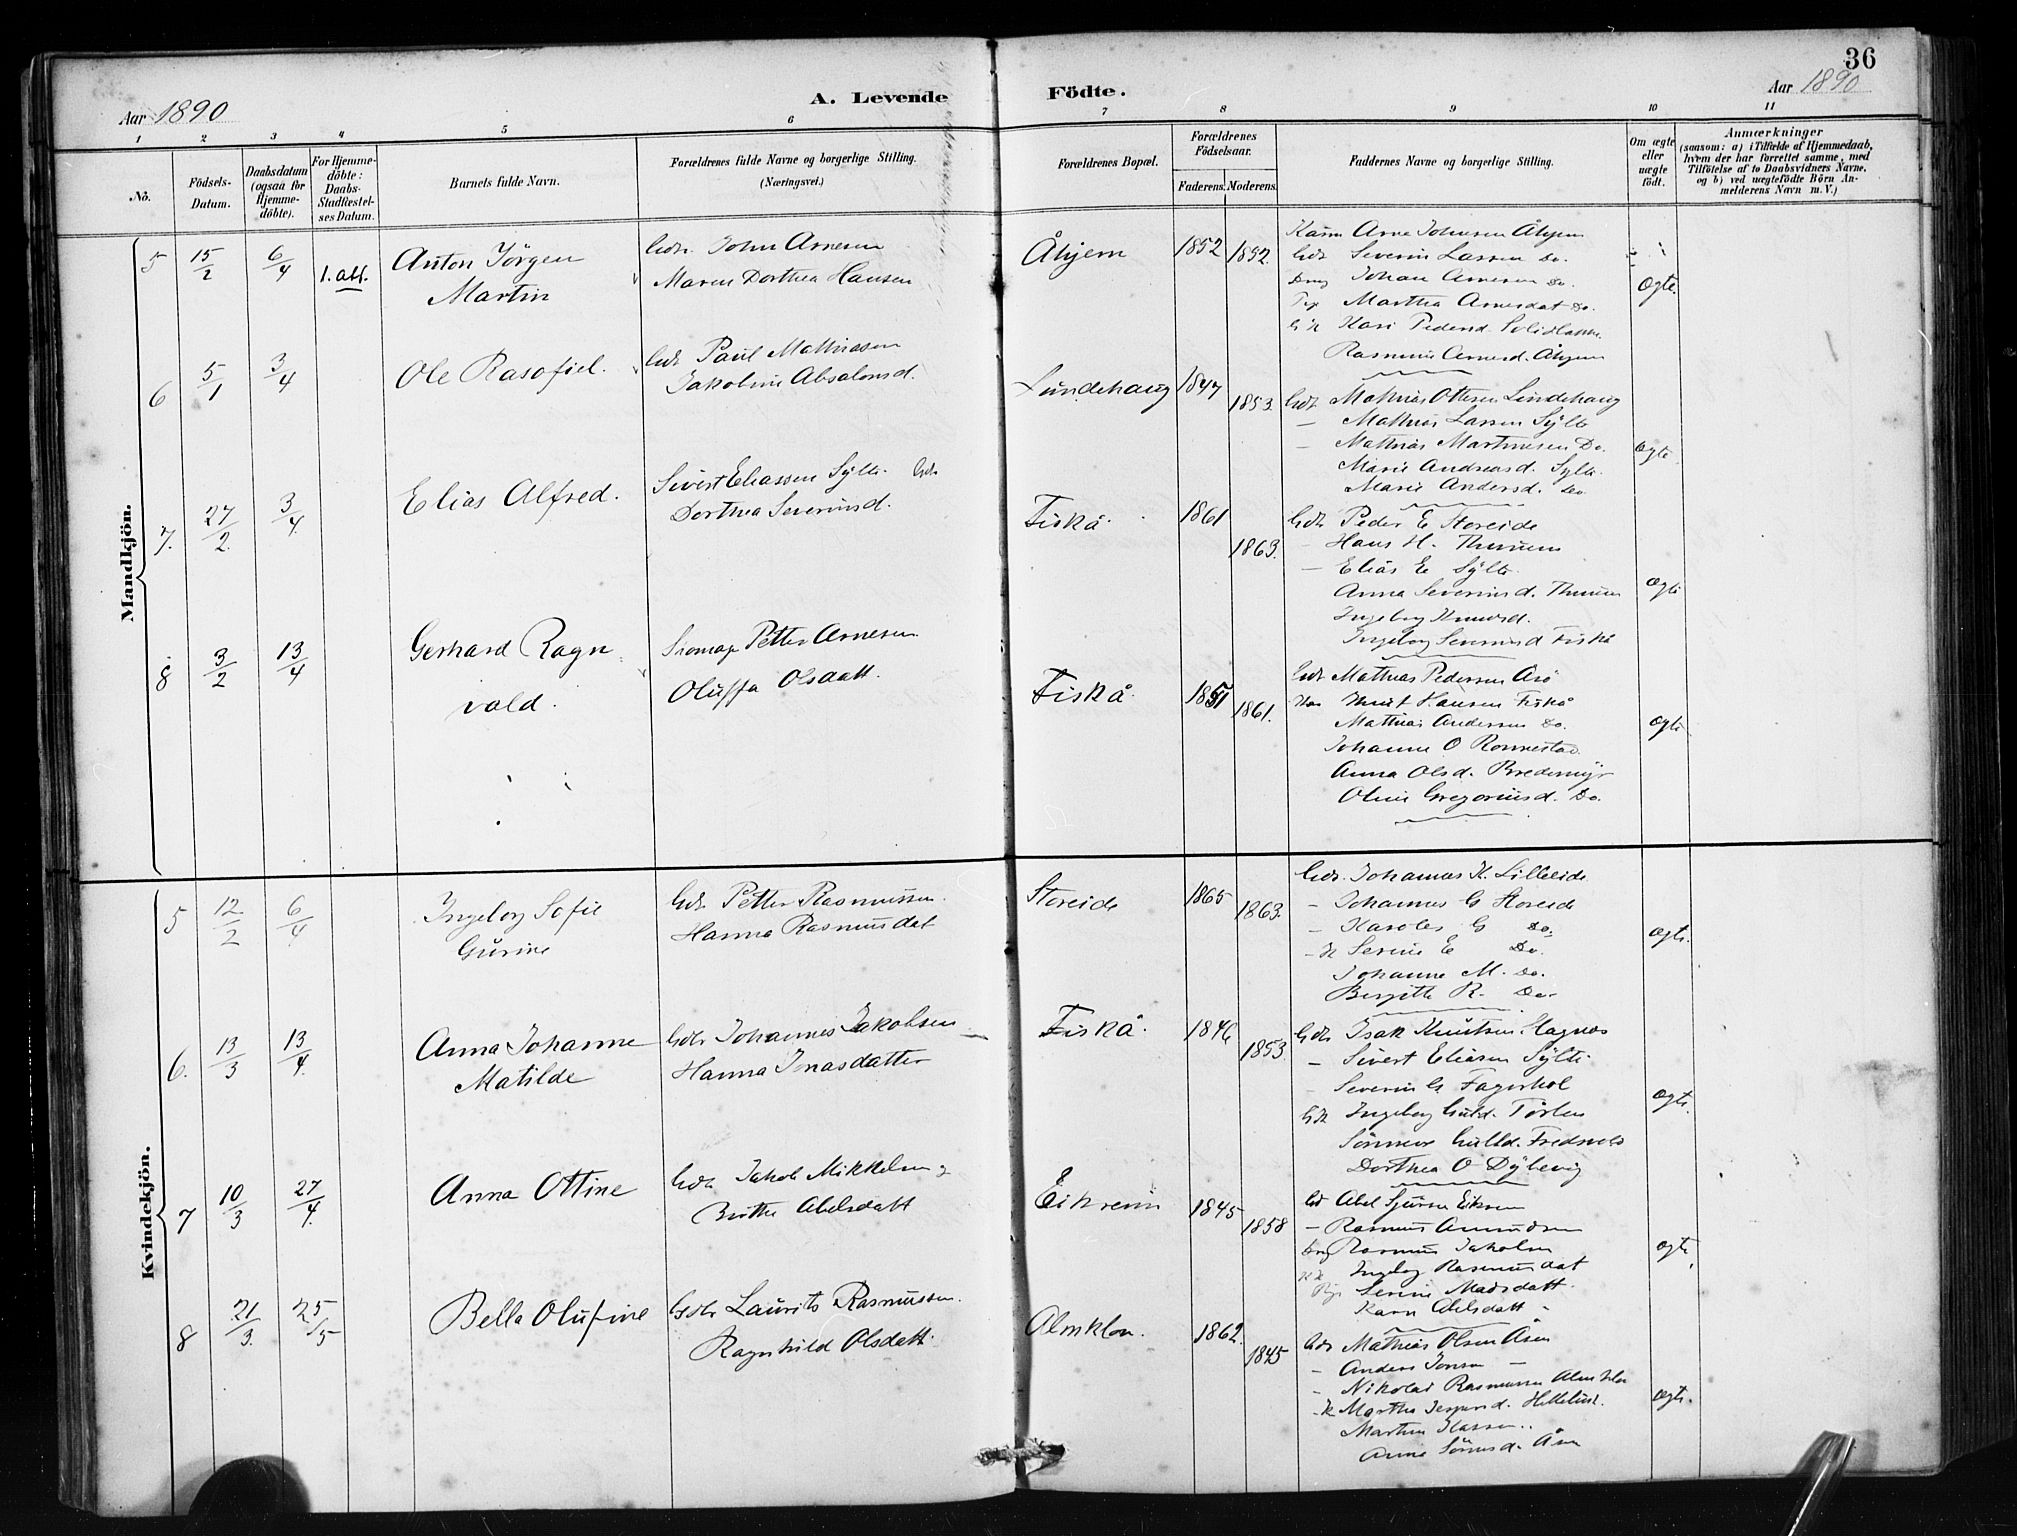 36
Aar 1890
A. Levende
Födte.
Aar 1890
1 2 3 4 5 6 7 8 9 10 11
No.
Födsels-Datum.
Daabsdatum (ogsaa for Hjemme-döbte).
For Hjemme-döbte: Daabs-Stadfæstel-ses Datum.
Barnets fulde Navn.
Forældrenes fulde Navne og borgerlige Stilling.
(Næringsvei.)
Forældrenes Bopæl.
Forældrenes Födselsaar.
Faderens. Moderens.
Faddernes Navne og borgerlige Stilling.
Om ægte eller uægte födt.
Anmærkninger
(saasom: a) i Tilfælde af Hjemmedaab,
hvem der har forrettet samme, med
Tilföielse af to Daabsvidners Navne,
og b) ved uægtefödte Börn An-
melderens Navn m. V.)
Mandkjön.
5 15/2 6/4 1. alt. Anton Jörgen Martin
Gdr John Arnesen
Maren Dorthea Hansen
Åhjem 1852 1852.
Arne Johnsen Åhjem
Gdr Severin Larsen Do.
Johan Arnesen Do.
Martha Arnesdat Do.
Kari Pedersd.
Rasmine Arnesd. Åhjem
Ægte.
6 5/1 3/4 Ole Rasofiel.
Gdr Paul Mathiasen
Jakobine Absalonsd.
Lundehaug 1847 1853.
Gdr Mathias Ottesen Lundehaug
– Mathias Larsen Sylte
– Mathias Martinusen Do.
Marie Andreasd. Sylte.
Marie Andersd. Do
Ægte
7. 27/2 3/4 Elias Alfred.
Sivert Eliassen Sylte. Gdr
Dorthea Severinsd.
Fiskå. 1861 1863.
Gdr Peder E Storeide
– Hans H. Thunem
– Elias E Sylte.
Anna Severinsd. Thunem
Ingeborg Knutsd.
Ingeborg Severinsd Fiskå
Ægte
8 3/2 13/4 Gerhard Ragnvald.
Petter Arnesen
Oluffa Olsdatt.
Fiskå. 1851 1861.
Gdr Mathias Pedersen Arö
Knut Hansen Fiskå
Mathias Andersen Do.
Johanne O Ronnestad
Anna Olsd. Bredemyr
Oline Gregoriusd. Do.
Ægte
Kvindekjön.
5 12/2 6/4 Ingeborg Sofie Gurine
Gdr Petter Rasmussen.
Hanna Rasmusdat
Storeide 1865 1863.
Gdr. Johannes K. Lilleeide
– Johannes G Storeide
– Karoles G Do.
– K Serine E Do.
Johanne M. Do.
Bergitte R. Do.
Ægte.
6. 13/3 13/4 Anna Johanne Matilde
Gdr Johannes Jakobsen
Hanna Jonasdatter
Fiskå. 1846 1853.
Gdr Isak Knutsen Hagnæs
– Sivert Eliasen Sylte
– Severin G. Fagerhol
GK Ingeborg Guld.
Dorthea O Dybevig
Ægte.
7 10/3 27/4 Anna Ottine
Gdr Jakob Mikkelsen
Birthe Abelsdatt
Eikrem 1845 1858
Gd Abel Sjursen Eikrem
– Rasmus Amundsen
Rasmus Jakobsen
Ingeborg Rasmusdat
Serine Madsdatt.
Karn Abelsdatt
Ægte
8 21/3. 25/5 Bella Olufine
Gdbr Laurits Rasmussen.
Ragnhild Olsdatt.
Almklov. 1862. 1845
Gdr Mathias Olsen Åsen
– Anders Jonsen –
– Nikolai Rasmussen Almklov
K Martha Jespersd.
Anne Sörensd. Åsen
Ægte.